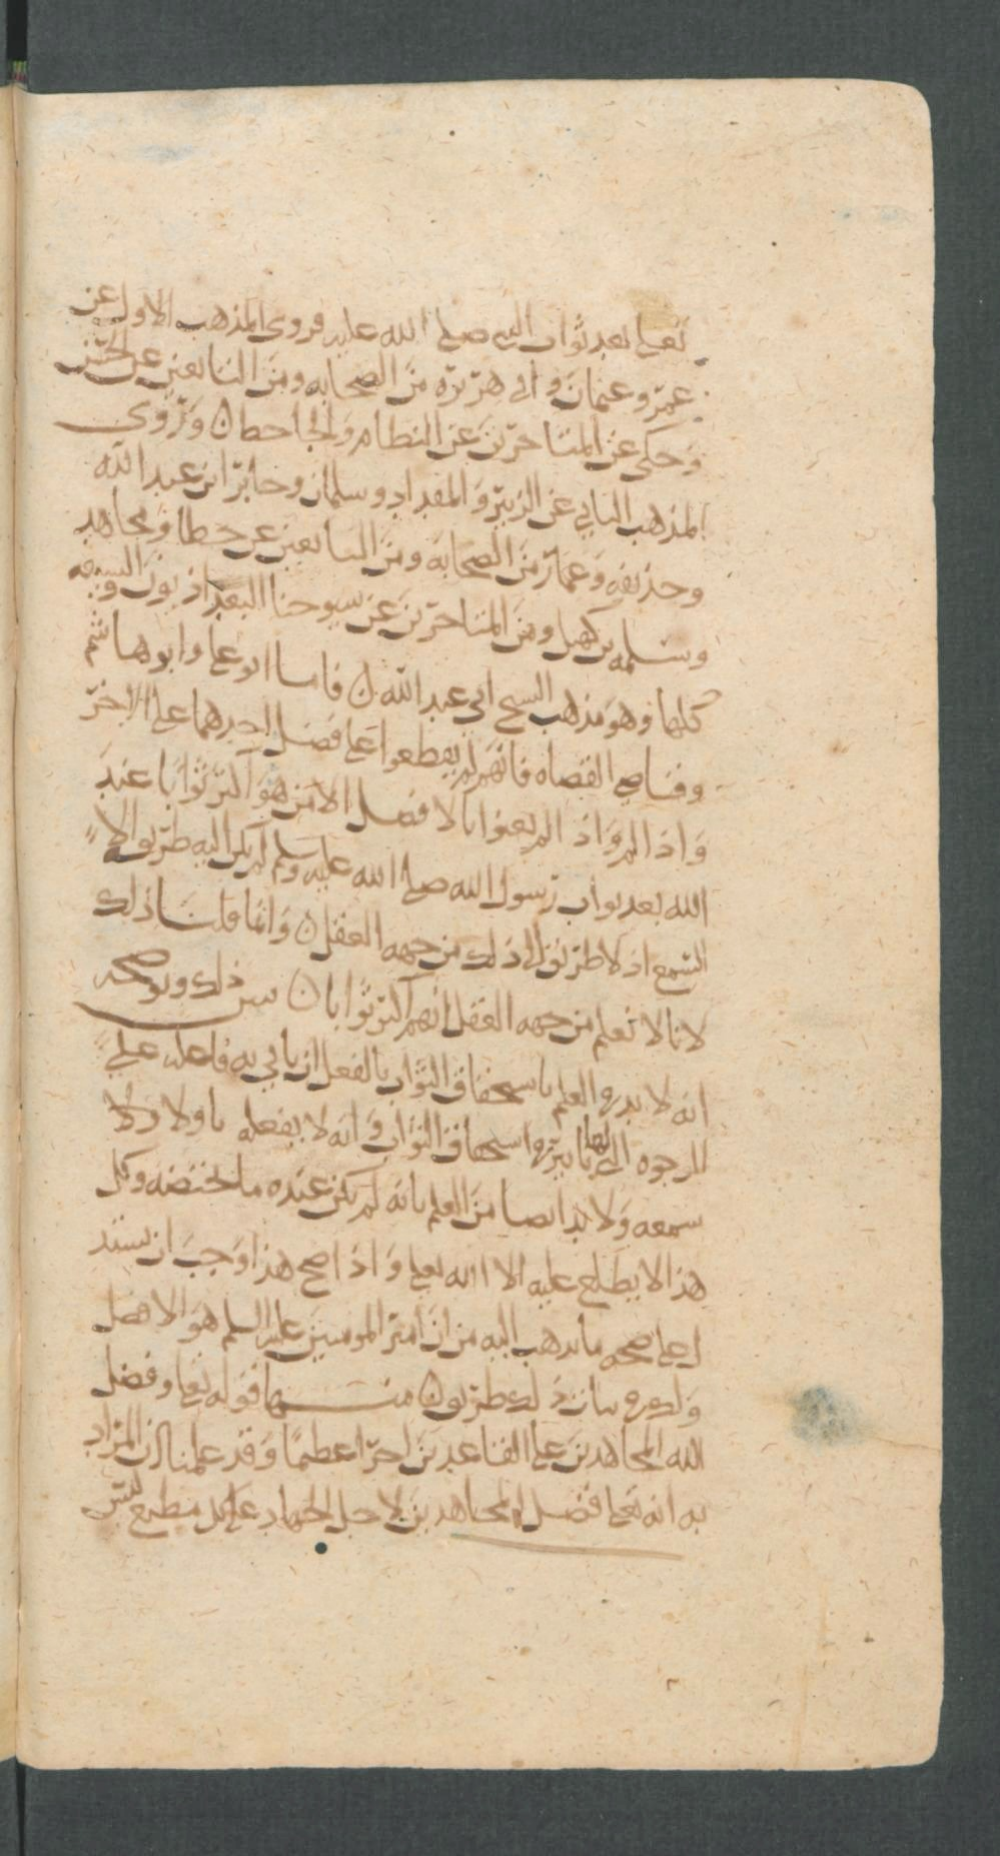 تعالى بعد ثواب النبي صلى الله عليه فروى المذهب الاول عن
عمر وعثمان وابي هريره من الصحابه ومن التابعين عن الحسن
وحكي عن المتاخرين عن النظام والجاحظ ن وروى
المذهب الثاني عن الزبير والمقداد وسلمان وجابر ابن عبد الله
وحذيفه وعمار من الصحابه ومن التابعين عن عطا ومجاهد
وسلمه بن كهيل ومن المتاخرين عن شيوخنا البغداذيون والشيعه
كلها وهو مذهب الشيخ ابي عبد الله ن فاما ابو علي وابو هاشم
وقاضي القضاه فانهم لم يقطعوا على فضل احدهما على الاخر
واذا المراد الم يعنوا بالافضل الا من هو اكثر ثوابا عند
الله بعد ثواب رسول الله صلى الله عليه وسلم لم يكن اليه طريق الا
السمع اذ لا طريق الى ذلك من جهه العقل ن وانما قلنا ذلك
لانا لا نعلم من جهه العقل انهم اكثر ثوابا ن يبين ذلك ويوضحه
انه لا بد في العلم باستحقاق الثواب بالفعل ان ياتي به فاعله على
الوجوه التي لها تاثير في استحقاق الثواب وانه لا يفعله رياولا
سمعه ولا بد ايضا من العلم بانه لم يكن عنده ما يحبطه وكل
هذا لا يطلع عليه الا الله تعالى واذا صح هذا وجب ان يستد
ل على صحه ما نذهب اليه من ان امير المومنين عليه السلم هو الافضل
ولنا في بيان ذلك طريق ن منها قوله تعالى وفضل
الله المجاهدين على القاعدين اجرا عظيما وقد علمنا ان المراد
به انه تعالى فضل المجاهدين لاجل الجهاد على كل مطيع ليس